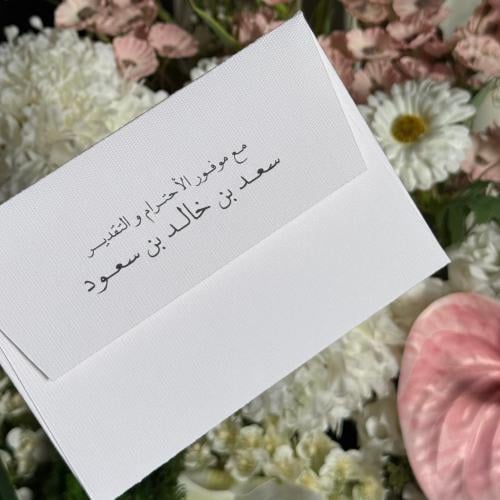 مع موفور الأحترام و التقدير
سعد بن خالد بن سعود